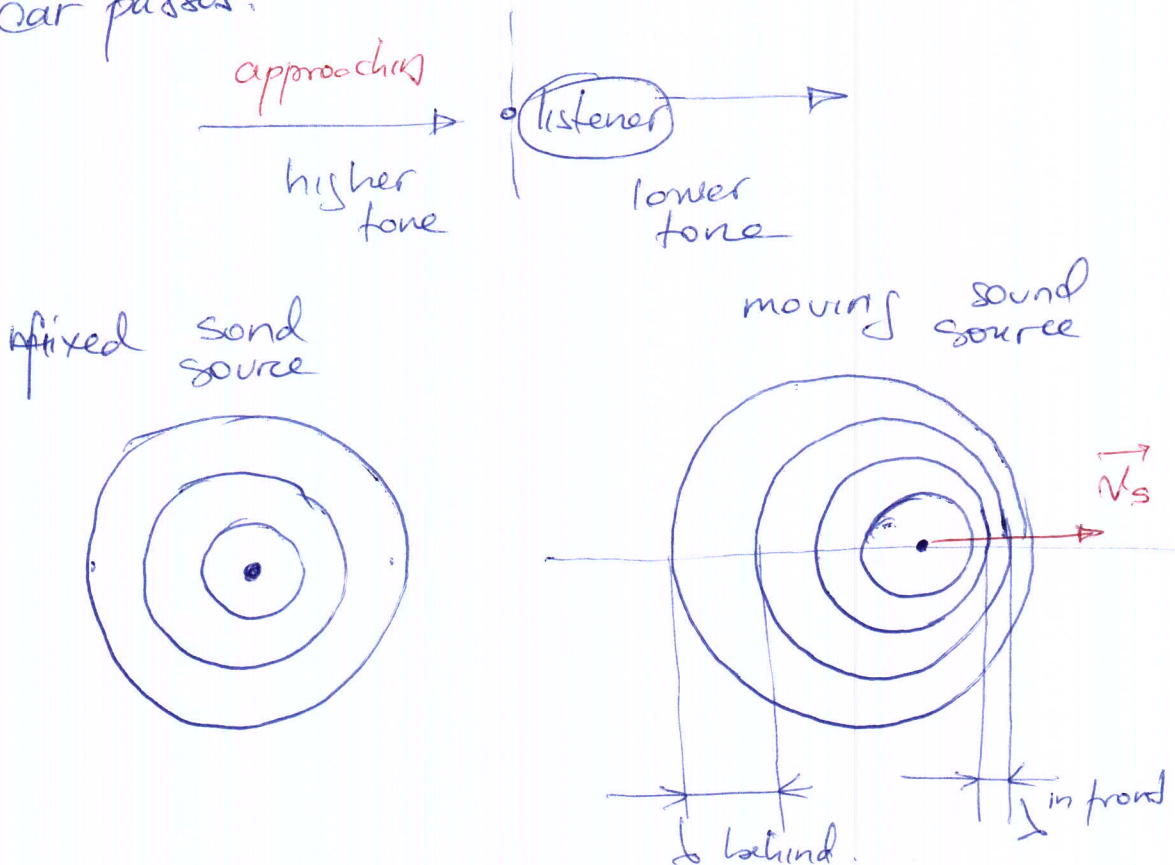 car passes.
approaching
listener
higher
tone
lower
tone
fixed sond
source
moving sound
source
Vs
λ behind.
λ in frond